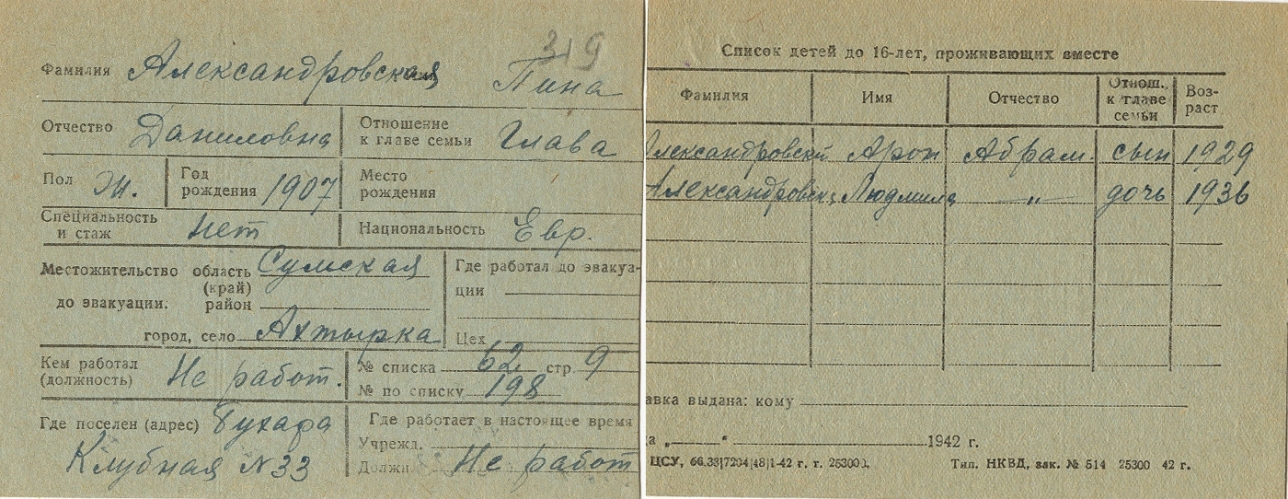 319
Фамилия Александровская Пина
Отчество Даниловна Отношение к главе семьи Глава
Пол Ж. Год рождения 1907 Место рождения
Специальность и стаж Нет Национальность Евр.
Местожительство область (край) Сумская Где работал до эвакуа-
до эвакуации. район ции
город, село Ахтырка Цех
Кем работал (должность) Не работ. № списка 62 стр. 9
№ по списку 198
Где поселен (адрес) Бухара Где работает в настоящее время
Клубная N 33 Учрежд.
Должн. Не работ
Список детей до 16-лет, проживающих вместе
Фамилия Имя Отчество Отнош. к главе семьи Воз-раст
Александровский Арон Абрам. сын 1929
Александровск. Людмила —„— дочь 1936
авка выдана: кому
а „ “ 1942 г.
ЦСУ, 66.33|7204|48|1-42 г. т. 253000. Тип. НКВД, зак. № 514 25300 42 г.